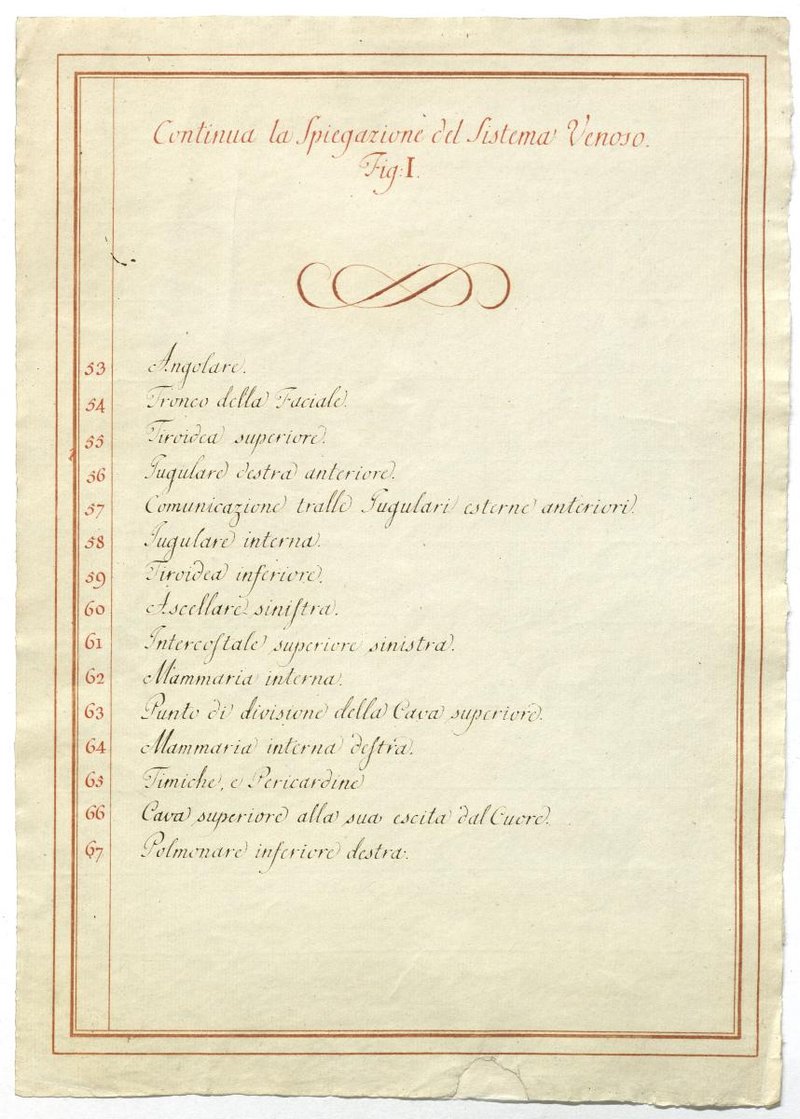 Continua la Spiegazione del Sistema Venoso.
Fig: I.
53 Angolare.
54 Tronco della Faciale.
55 Tiroidea superiore.
56 Jugulare destra anteriore.
57 Comunicazione tralle Jugulari esterne anteriori.
58 Jugulare interna.
59 Tiroidea inferiore.
60 Ascellare sinistra.
61 Intercostale superiore sinistra.
62 Mammaria interna.
63 Punto di divisione della Cava superiore.
64 Mammaria interna destra.
65 Timiche, e Pericardine
66 Cava superiore alla sua escita dal Cuore.
67 Polmonare inferiore destra.